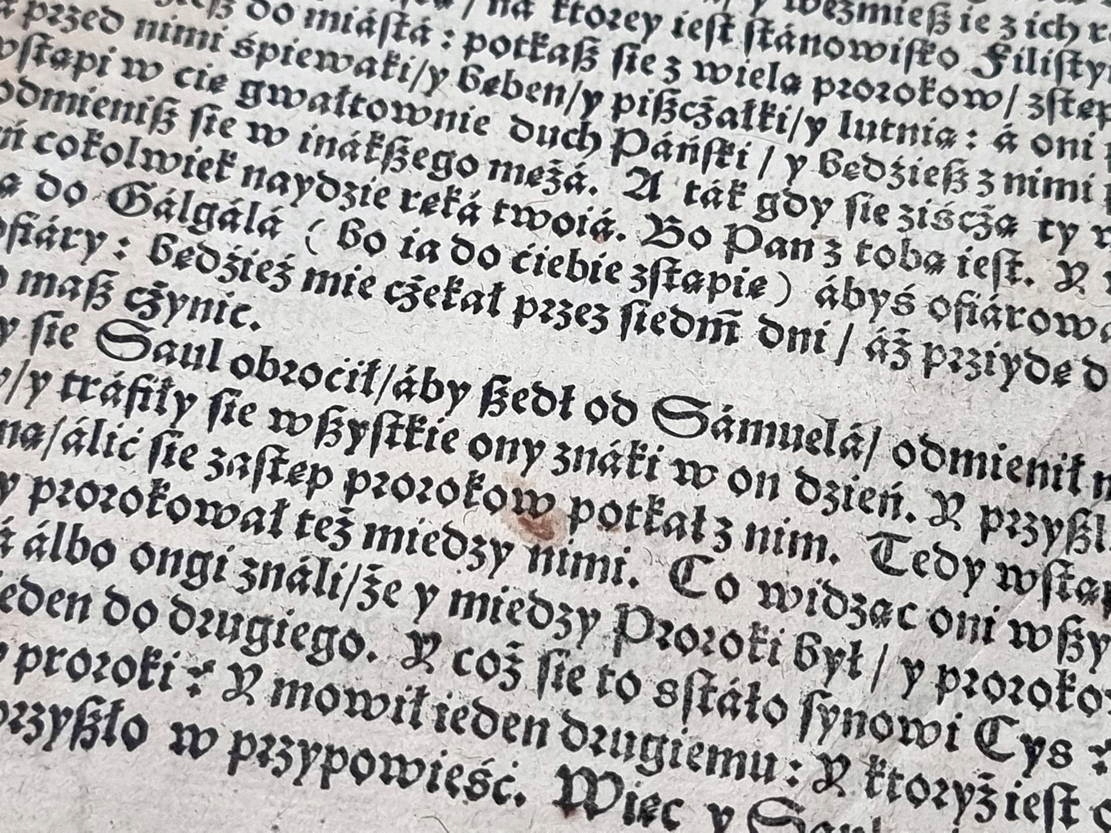 na ktorey ieſt ſtánowiſko Filiſty
do miáſtá : potkaß ſie z wielą prorokow/ zſtęp
przed nimi śpiewaki/y bęben/y pißcżałki/y lutnią : á oni
wſtąpi w cię gwałtownie duch Páńſki / y będźieß z nimi
odmieniß ſie w inákßego mężá. A ták gdy ſie ziścżą ty
cokolwiek naydzie ręká twoiá. Bo Pan z tobą ieſt. Y
do Gálgálá ( bo ia do ćiebie zſtąpię ) ábyś ofiárow
ofiáry : będźież mie cżekał przez siedm̄ dni / áż przyidę d
maß cżynic.
ſie Saul obrocił/áby ßedł od Sámuelá/ odmienił
/y tráfiły ſie wßyſtkie ony znáki w on dzień. Y przyßl
/álić ſie zaſtęp prorokow potkał z nim. Tedy wſtą
y prorokował też miedzy nimi. Co widząc oni wßy
álbo ongi ználi/że y miedzy Proroki był / y proroko
ieden do drugiego. Y coż ſie to sſtáło ſynowi Cys :
proroki : Y mowił ieden drugiemu : Y ktoryż ieſt
przyßło w przypowieść. Więc y Saul